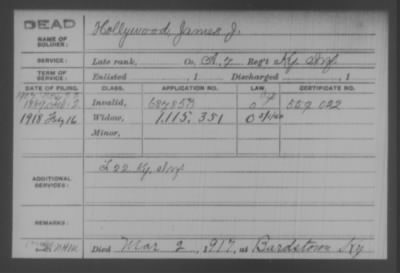 DEAD
Hollywood, James J.
NAME OF SOLDIER:
SERVICE: Late rank, Co. A, 7 Reg't Ky Inf
TERM OF SERVICE: Enlisted , 1 Discharged , 1
DATE OF FILING. CLASS. APPLICATION NO. LAW. CERTIFICATE NO.
Invalid, 687853 557 022
1918 Feby 16 Widow, 1.115.381 O
Minor,
ADDITIONAL SERVICES: F 22 Ky Inf
REMARKS:
Died Mar 2, 1917, at Bardstown Ky